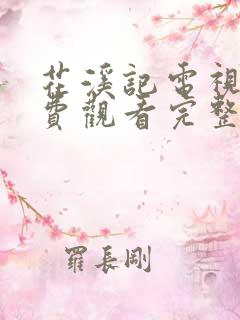 茌溪記電視
費觀看完整
羅長剛